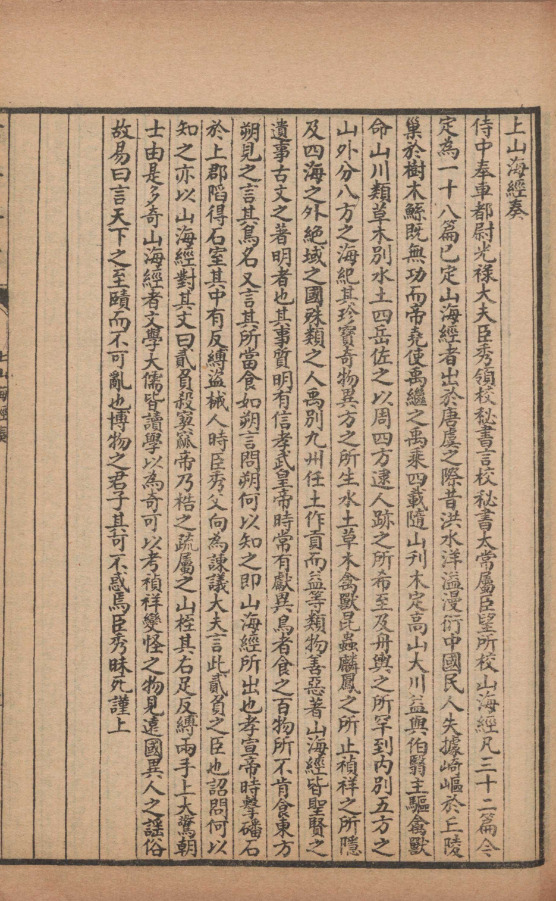 上山海經奏
侍中奉車都尉光祿大夫臣秀領校秘書言校秘書太常屬臣望所校山海經凡三十二篇今
定為一十八篇已定山海經者出於唐虞之際昔洪水洋溢漫衍中國民人失據崎嶇於丘陵
巢於樹木鯀既無功而帝堯使禹繼之禹乘四載隨山刊木定高山大川益與伯翳主驅禽獸
命山川類草木別水土四岳佐之以周四方逮人跡之所希至及舟輿之所罕到内別五方之
山外分八方之海紀其珍寶奇物異方之所生水土草木禽獸昆蟲麟鳳之所止禎祥之所隱
及四海之外絕域之國殊類之人禹別九州任土作貢而益等類物善惡著山海經皆聖賢之
遺事古文之著明者也其事質明有信孝武皇帝時常有獻異鳥者食之百物所不肯食東方
朔見之言其鳥名又言其所當食如朔言問朔何以知之即山海經所出也孝宣帝時擊磻石
於上郡陷得石室其中有反縛盜械人時臣秀父向為諫議大夫言此貳負之臣也詔問何以
知之亦以山海經對其文曰貳負殺窫窳帝乃梏之疏屬之山桎其右足反縛兩手上大驚朝
士由是多奇山海經者文學大儒皆讀學以為奇可以考禎祥變怪之物見遠國異人之謠俗
故易曰言天下之至賾而不可亂也博物之君子其可不惑焉臣秀昧死謹上
上山海經奏